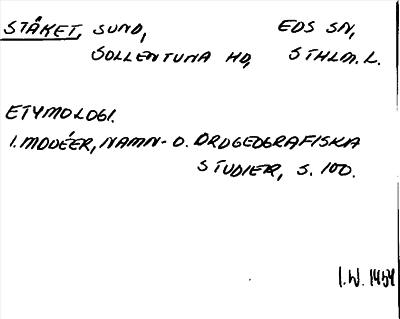 STÅKET, SUND, EDS SN,
SOLLENTUNA HD, STHLM. L.
ETYMOLOGI.
I. MODÉER, NAMN- O. ORDGEOGRAFISKA
STUDIER, S. 100.
I.W. 1954